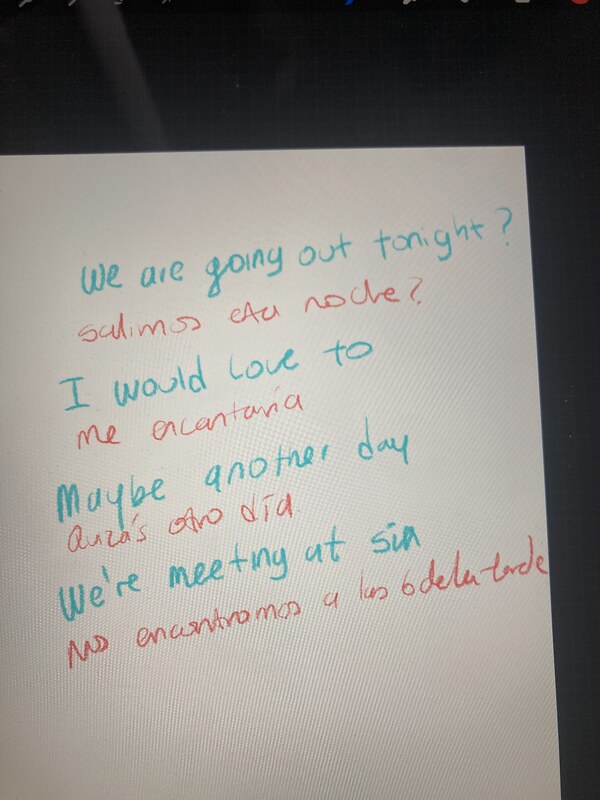 We are going out tonight?
salimos esta noche?
I would love to
me encantaría
Maybe another day
Quizás otro día
We're meeting at six
Nos encontramos a las 6 de la tarde